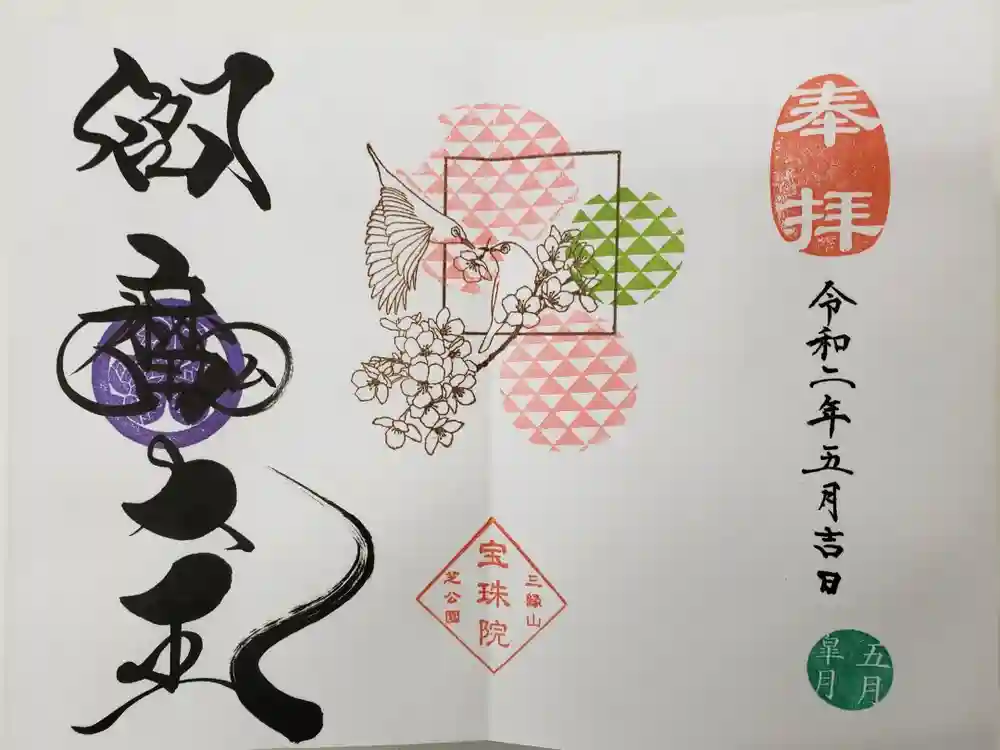 奉拝
令和二年五月吉日
五月
皐月
三縁山
宝珠院
芝公園
閻魔大王